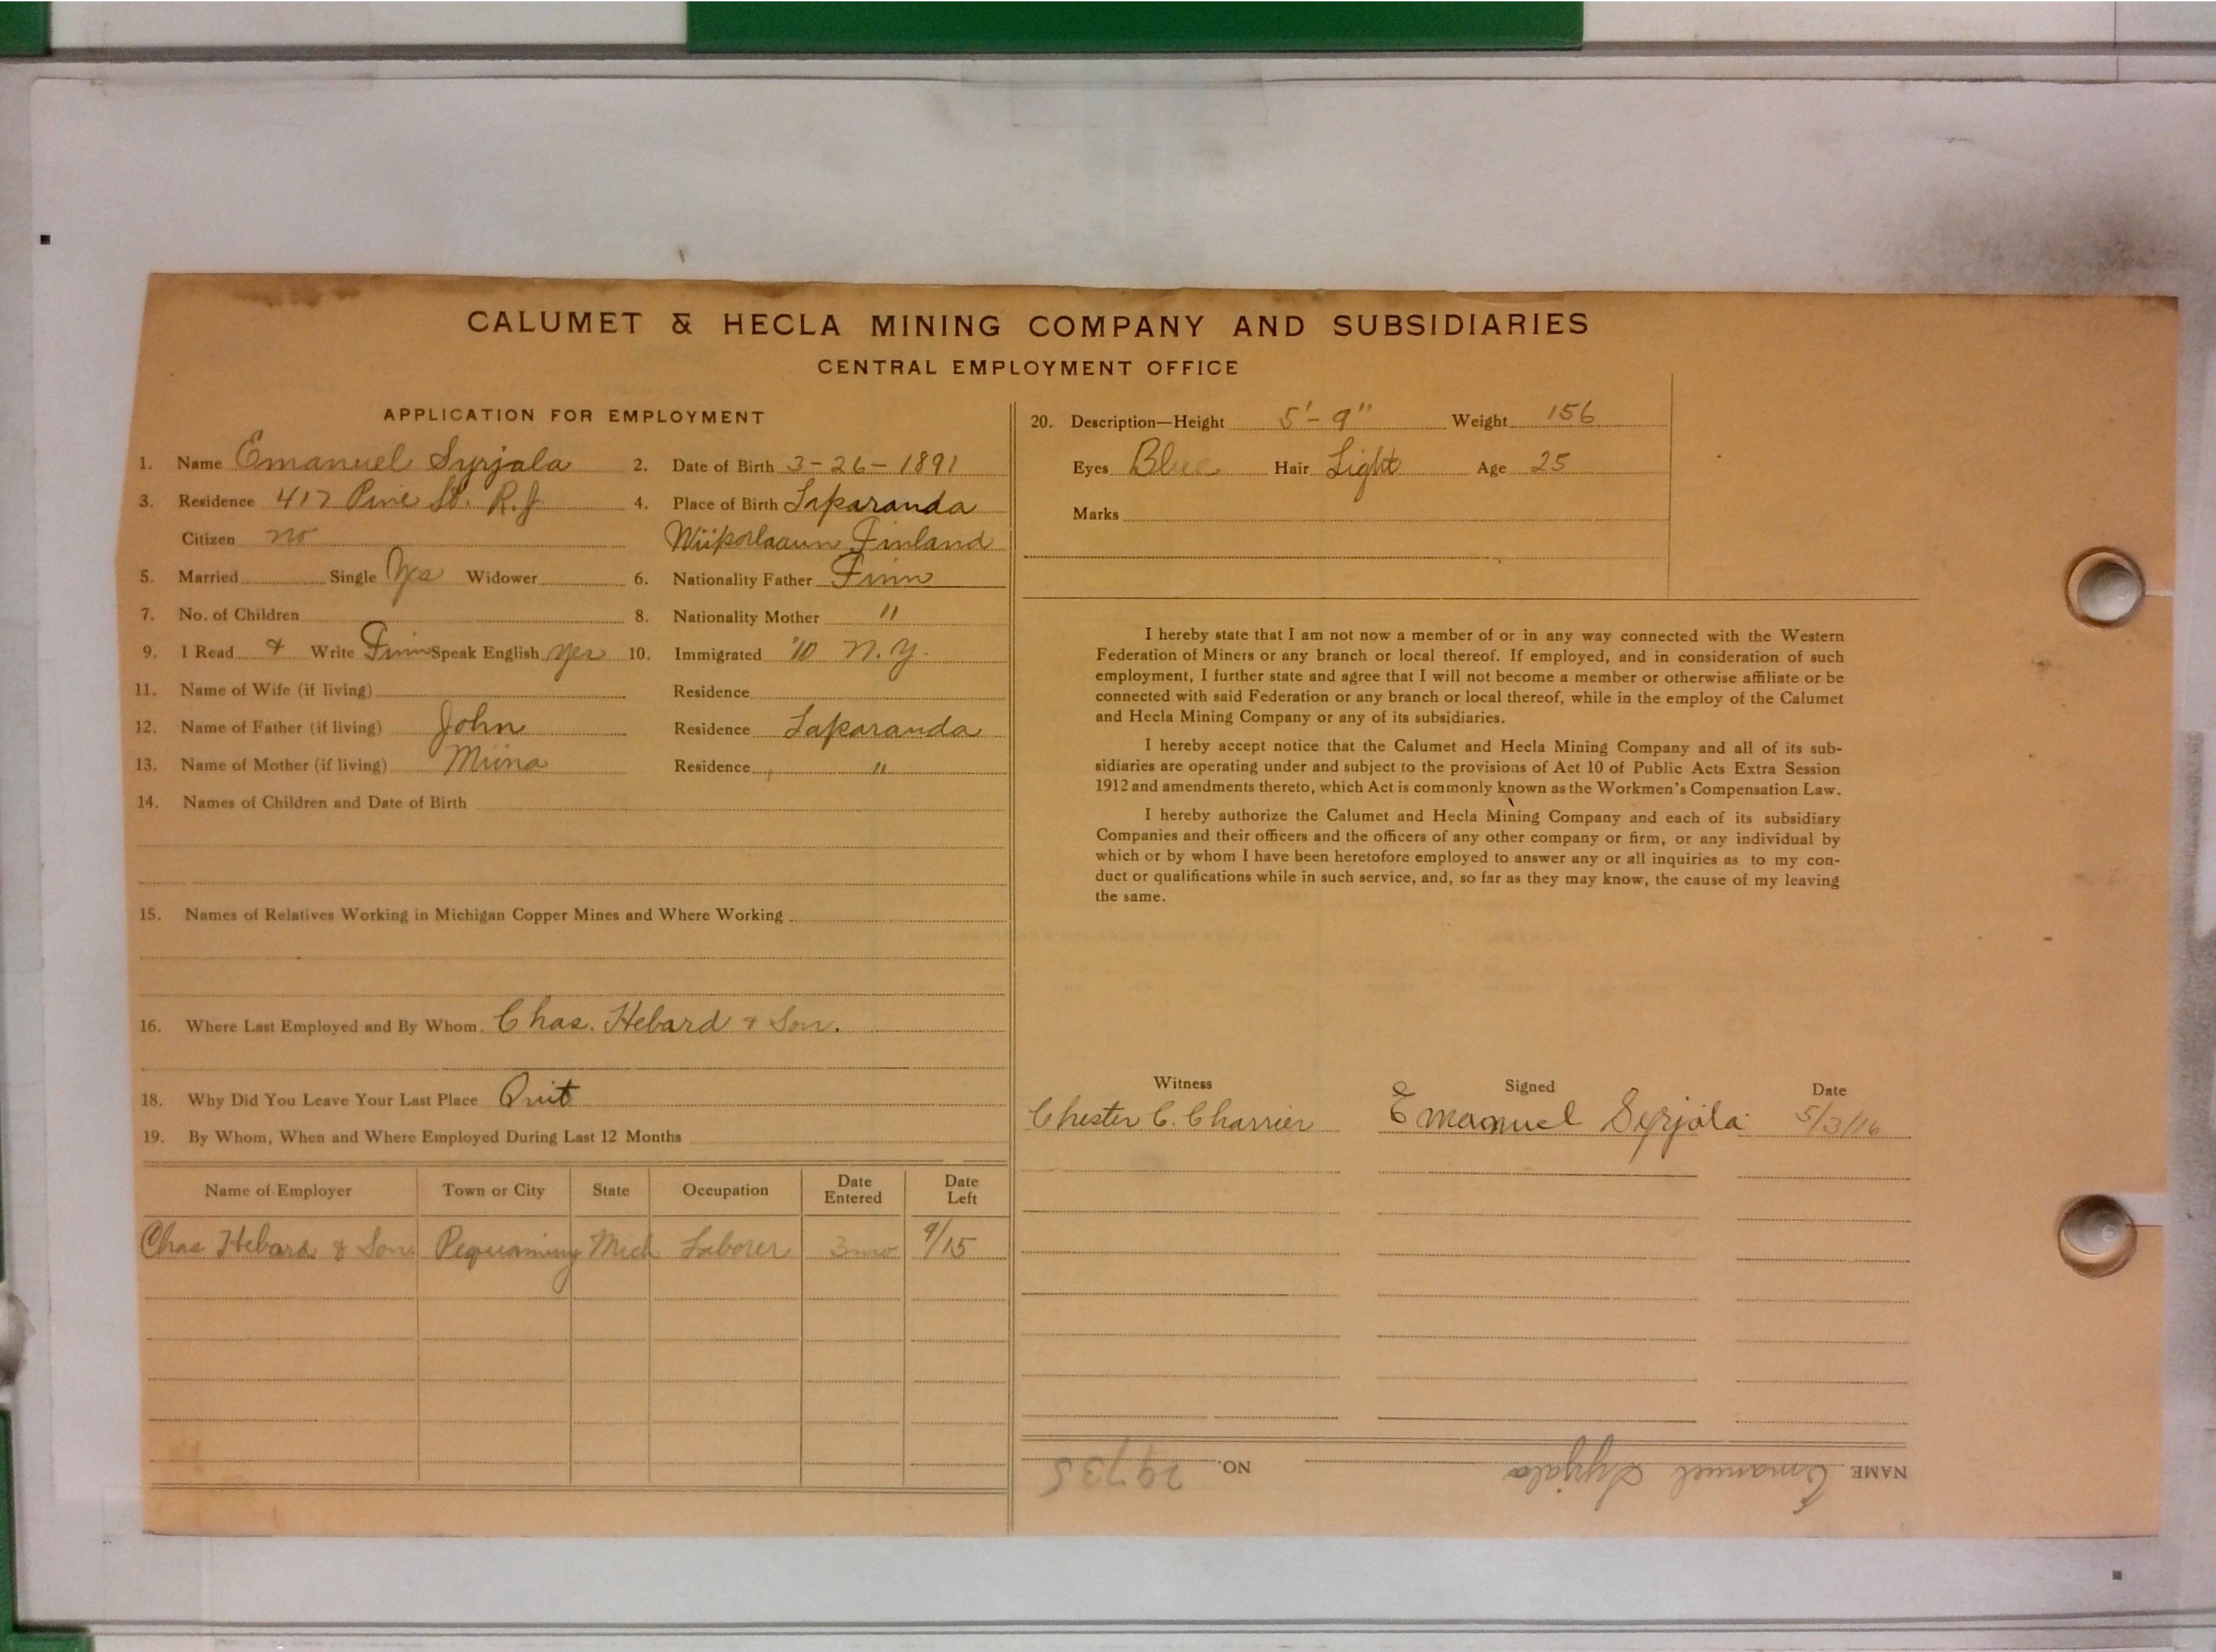 CALUMET & HECLA MINING COMPANY AND SUBSIDIARIES
CENTRAL EMPLOYMENT OFFICE
APPLICATION FOR EMPLOYMENT
1. Name Emanuel Syrjala 2. Date of Birth 3-26-1891
3. Residence 417 Pine St. R.J. 4. Place of Birth Laparanda
Citizen no Wiiporlaaun Finland
5. Married Single Yes Widower 6. Nationality Father Finn
7. No. of Children 8. Nationality Mother "
9. I Read & Write Finn Speak English yes 10. Immigrated '10 N.Y.
11. Name of Wife (if living) Residence
12. Name of Father (if living) John Residence Laparanda
13. Name of Mother (if living) Miina Residence "
14. Names of Children and Date of Birth
15. Names of Relatives Working in Michigan Copper Mines and Where Working
16. Where Last Employed and By Whom Chas. Hebard & Son.
18. Why Did You Leave Your Last Place Quit
19. By Whom, When and Where Employed During Last 12 Months
Name of Employer Town or City State Occupation Date Entered Date Left
Chas Hebard & Son Pequaming Mich Laborer 3mo 9/15
20. Description—Height 5'-9" Weight 156
Eyes Blue Hair Light Age 25
Marks
I hereby state that I am not now a member of or in any way connected with the Western
Federation of Miners or any branch or local thereof. If employed, and in consideration of such
employment, I further state and agree that I will not become a member or otherwise affiliate or be
connected with said Federation or any branch or local thereof, while in the employ of the Calumet
and Hecla Mining Company or any of its subsidiaries.
I hereby accept notice that the Calumet and Hecla Mining Company and all of its sub-
sidiaries are operating under and subject to the provisions of Act 10 of Public Acts Extra Session
1912 and amendments thereto, which Act is commonly known as the Workmen's Compensation Law.
I hereby authorize the Calumet and Hecla Mining Company and each of its subsidiary
Companies and their officers and the officers of any other company or firm, or any individual by
which or by whom I have been heretofore employed to answer any or all inquiries as to my con-
duct or qualifications while in such service, and, so far as they may know, the cause of my leaving
the same.
Witness Signed Date
Chester C. Charrier Emanuel Syrjala 5/3/16
NAME Emanuel Syrjala NO. 29735